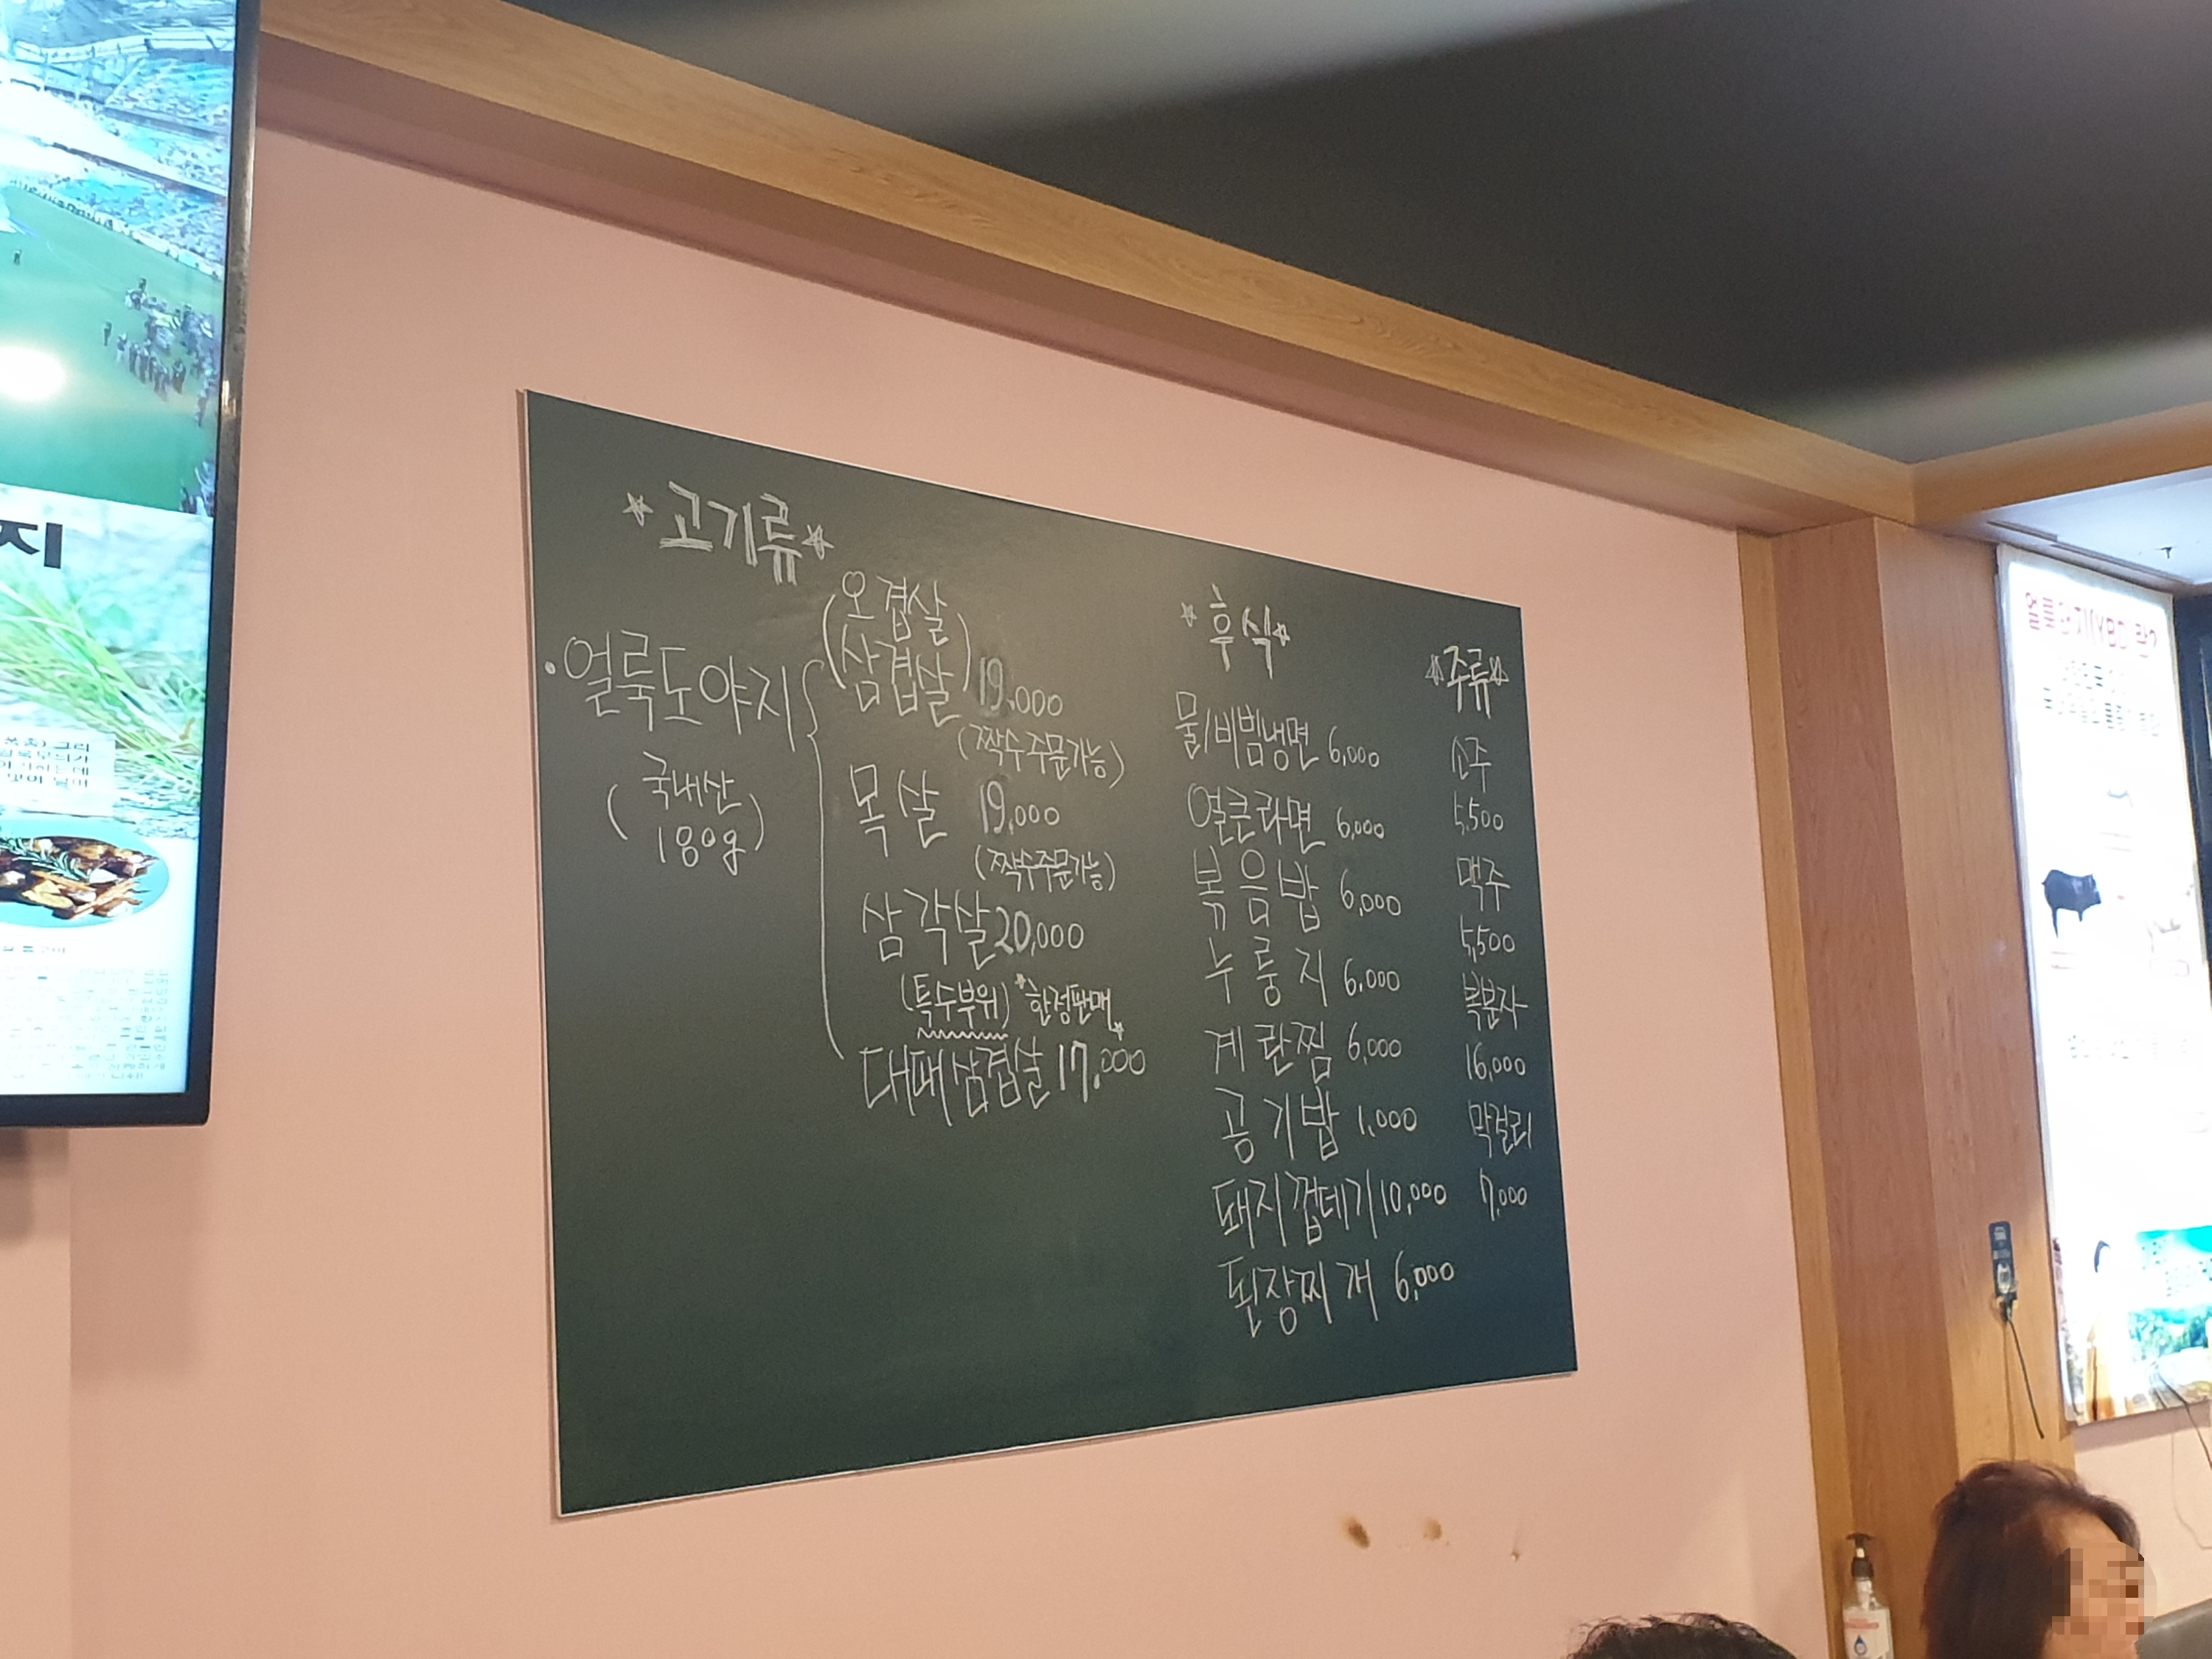 지
★고기류★
·얼룩도야지
(국내산
180g)
(오겹살
삼겹살) 19,000
(짝수주문가능)
목살 19,000
(짝수주문가능)
삼각살 20,000
(특수부위) *한정판매*
대패삼겹살 17,000
★후식★
물/비빔냉면 6,000
얼큰라면 6,000
볶음밥 6,000
누룽지 6,000
계란찜 6,000
공기밥 1,000
돼지껍데기 10,000
된장찌개 6,000
★주류★
소주
5,500
맥주
5,500
복분자
16,000
막걸리
7,000